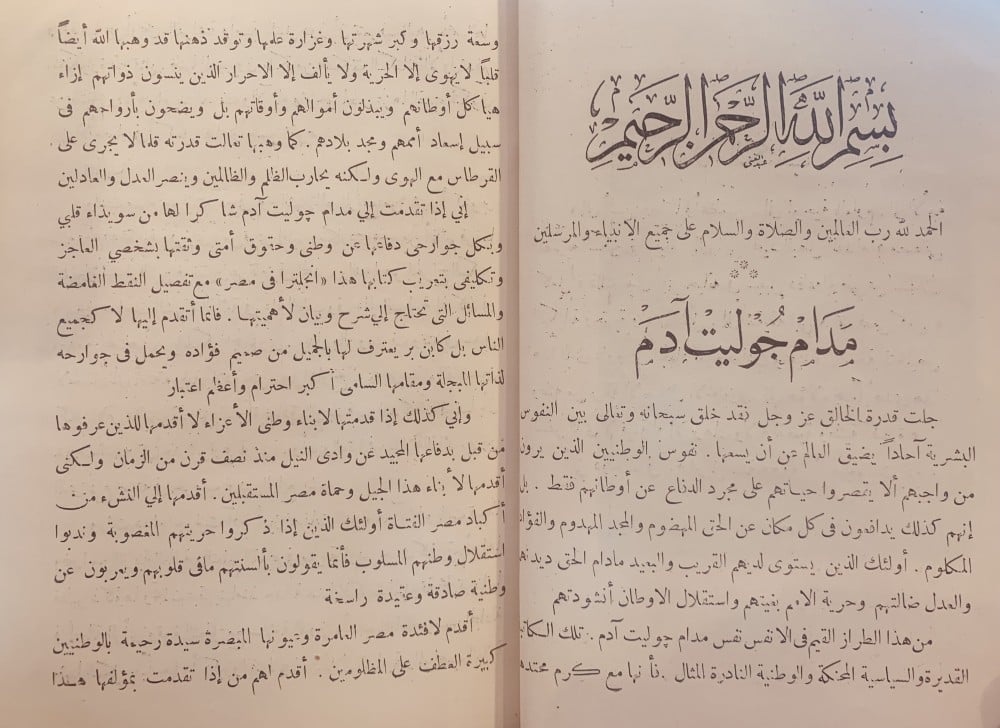 بسم الله الرحمن الرحيم
الحمد لله رب العالمين والصلاة والسلام على جميع الانبياء والمرسلين
مدام جوليت آدم
جلت قدرة الخالق عز وجل نقد خلق سبحانه وتعالى بين النفوس
البشرية آحاداً يضيق العالم عن أن يسعها . نفوس الوطنيين الذين يرون
من واجبهم ألا يقصروا حياتهم على مجرد الدفاع عن أوطانهم فقط . بل
إنهم كذلك يدافعون فى كل مكان عن الحق المهضوم والمجد المهدوم والفؤاد
المكلوم . أولئك الذين يستوى لديهم القريب والبعيد مادام الحق ديدنهم
والعدل ضالتهم وحرية الامم بغيتهم واستقلال الاوطان أنشودتهم
من هذا الطراز القيم فى الانفس نفس مدام چوليت آدم . تلك الكاتبة
القديرة والسياسية المحنكة والوطنية النادرة المثال . فأنها مع كرم محتدها
وسعة رزقها وكبر شهرتها وغزارة علمها وتوقد ذهنها قد وهبها الله أيضاً
قلباً لايهوى إلا الحرية ولا يألف إلا الاحرار الذين ينسون ذواتهم إزاء
هياكل أوطانهم ويبذلون أموالهم وأوقاتهم بل ويضحون بأرواحهم فى
سبيل إسعاد أممهم ومجد بلادهم . كما وهبها تعالت قدرته قلما لا يجرى على
القرطاس مع الهوى ولكنه يحارب الظلم والظالمين وينصر العدل والعادلين
إني إذا تقدمت إلي مدام چوليت آدم شاكرا لها من سويداء قلبي
وبكل جوارحى دفاعها عن وطنى وحقوق أمتى وثقتها بشخصي العاجز
وتكليفى بتعريب كتابها هذا «انجلترا فى مصر» مع تفصيل النقط الغامضة
والمسائل التى تحتاج إلي شرح وبيان لأهميتها . فانما أتقدم إليها لا كجميع
الناس بل كابن بر يعترف لها بالجميل من صميم فؤاده ويحمل فى جوارحه
لذاتها المبجلة ومقامها السامى أكبر احترام وأعظم اعتبار
وإني كذلك إذا قدمتها لابناء وطنى الأعزاء لا أقدمها للذين عرفوها
من قبل بدفاعها المجيد عن وادى النيل منذ نصف قرن من الزمان ولكنى
أقدمها لأبناء هذا الجيل وحماة مصر المستقبلين . أقدمها إلي النشء من
أكباد مصر الفتاة أولئك الذين إذا ذكروا حريتهم المغصوبة وندبوا
استقلال وطنهم المسلوب فأنما يقولون بألسنتهم مافى قلوبهم ويعربون عن
وطنية صادقة وعقيدة راسخة
أقدم لافئدة مصر العامرة وعيونها المبصرة سيدة رحيمة بالوطنيين
كبيرة العطف على المظلومين . أقدم اهم من إذا تقدمت بمؤلفها هذا